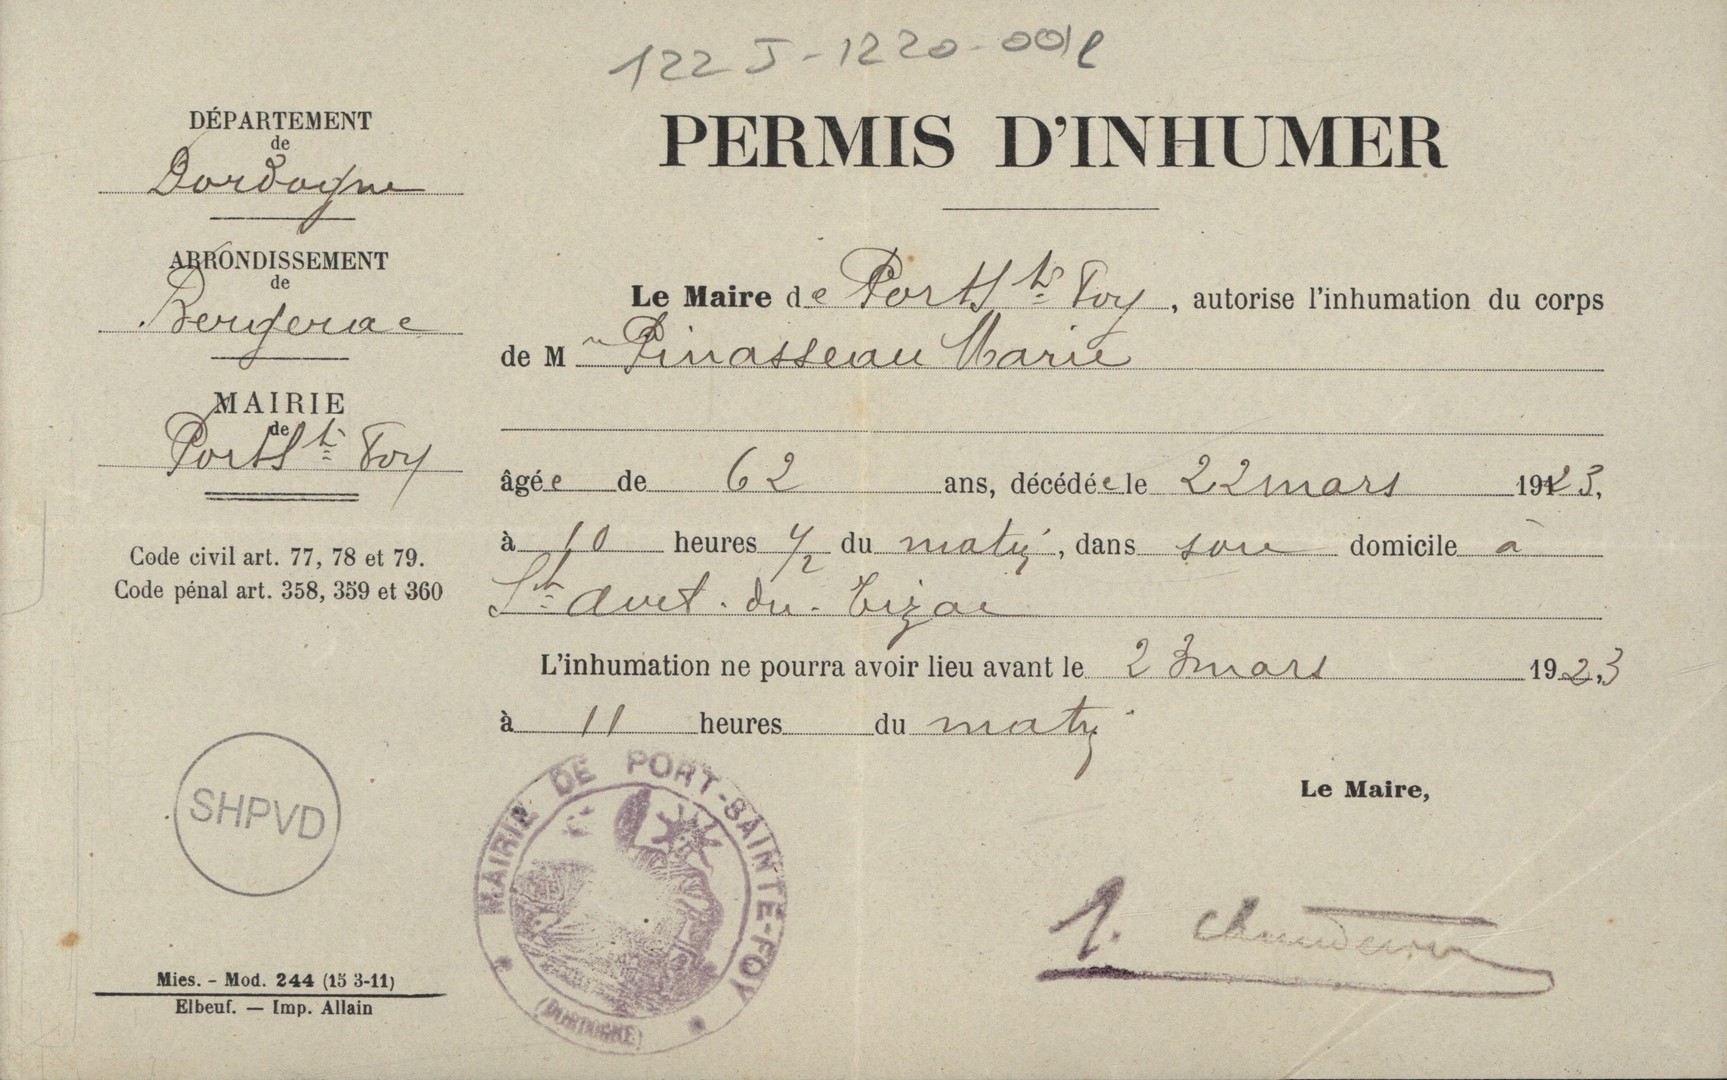 122 J-1220-001
PERMIS D'INHUMER
DÉPARTEMENT
de
Dordogne
ARRONDISSEMENT
de
Bergerac
MAIRIE
de
Port Ste Foy
Code civil art. 77, 78 et 79.
Code pénal art. 358, 359 et 360
Le Maire de Port Ste Foy, autorise l'inhumation du corps
de M Pinasseau Marie
âgée de 62 ans, décédée le 22 mars 1923,
à 10 heures 1/2 du matin, dans son domicile à
St Avet-du-Tizac
L'inhumation ne pourra avoir lieu avant le 23 mars 1923,
à 11 heures du matin
Le Maire,
SHPVD
MAIRIE DE PORT-SAINTE-FOY
(DORDOGNE)
Mies. - Mod. 244 (15 3-11)
Elbeuf. — Imp. Allain